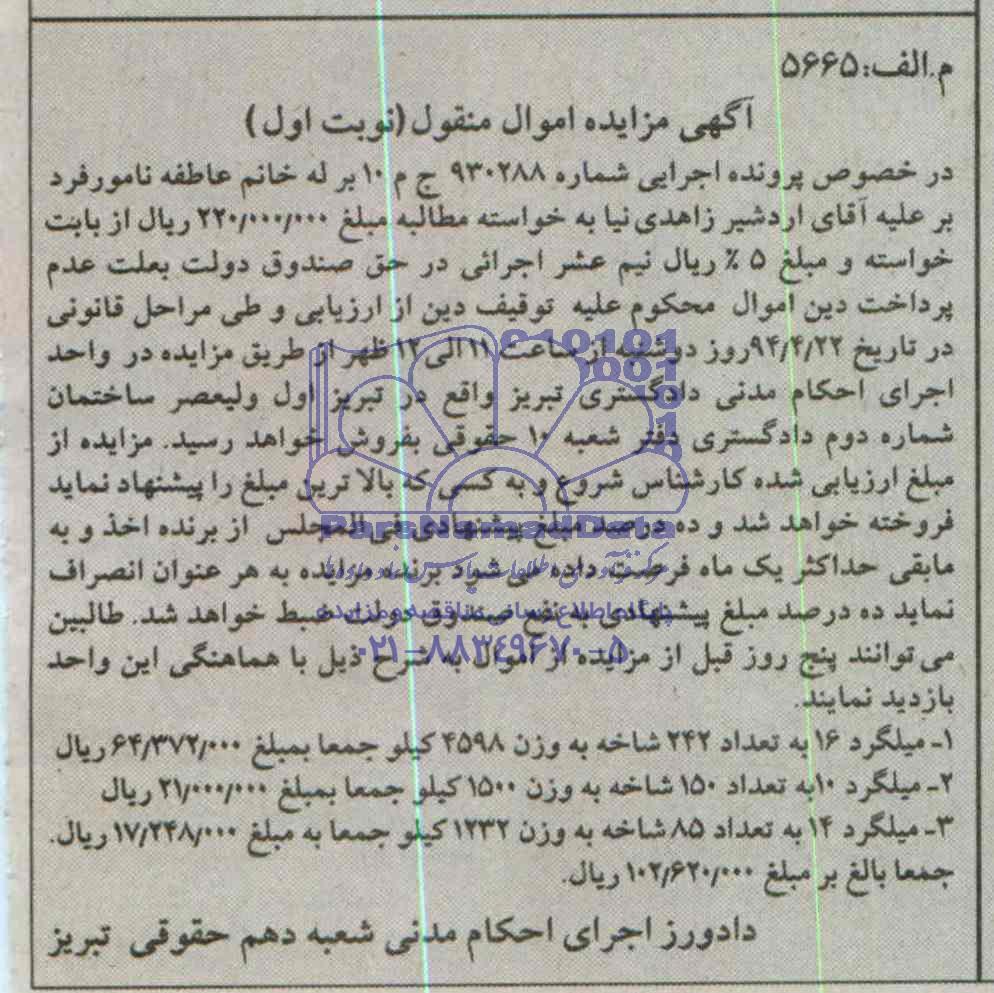 م.الف:۵۶۶۵
آگهی مزایده اموال منقول(نوبت اول)
در خصوص پرونده اجرایی شماره ۹۳۰۲۸۸ ج م ۱۰ بر له خانم عاطفه نامورفرد
بر علیه آقای اردشیر زاهدی نیا به خواسته مطالبه مبلغ ۲۲۰/۰۰۰/۰۰۰ ریال از بابت
خواسته و مبلغ ۵ ٪ ریال نیم عشر اجرائی در حق صندوق دولت بعلت عدم
پرداخت دین اموال محکوم علیه توقیف دین از ارزیابی و طی مراحل قانونی
در تاریخ ۹۴/۴/۲۲روز دوشنبه از ساعت ۱۱ الی ۱۲ ظهر از طریق مزایده در واحد
اجرای احکام مدنی دادگستری تبریز واقع در تبریز اول ولیعصر ساختمان
شماره دوم دادگستری دفتر شعبه ۱۰ حقوقی بفروش خواهد رسید. مزایده از
مبلغ ارزیابی شده کارشناس شروع و به کسی که بالا ترین مبلغ را پیشنهاد نماید
فروخته خواهد شد و ده درصد مبلغ پیشنهادی فی المجلس از برنده اخذ و به
مابقی حداکثر یک ماه فرصت داده می شود برنده مزایده به هر عنوان انصراف
نماید ده درصد مبلغ پیشنهادی به نفع صندوق دولت ضبط خواهد شد. طالبین
می توانند پنج روز قبل از مزایده از اموال به شرح ذیل با هماهنگی این واحد
بازدید نمایند.
۱- میلگرد ۱۶ به تعداد ۲۴۲ شاخه به وزن ۴۵۹۸ کیلو جمعا بمبلغ ۶۴/۳۷۲/۰۰۰ ریال
۲- میلگرد ۱۰به تعداد ۱۵۰ شاخه به وزن ۱۵۰۰ کیلو جمعا بمبلغ ۲۱/۰۰۰/۰۰۰ ریال
۳- میلگرد ۱۴ به تعداد ۸۵ شاخه به وزن ۱۲۳۲ کیلو جمعا به مبلغ ۱۷/۲۴۸/۰۰۰ ریال.
جمعا بالغ بر مبلغ ۱۰۲/۶۲۰/۰۰۰ ریال.
دادورز اجرای احکام مدنی شعبه دهم حقوقی تبریز
ParsNamadData
پایگاه اطلاع رسانی مناقصه و مزایده
۰۲۱-۸۸۳۴۹۶۷۰-۵